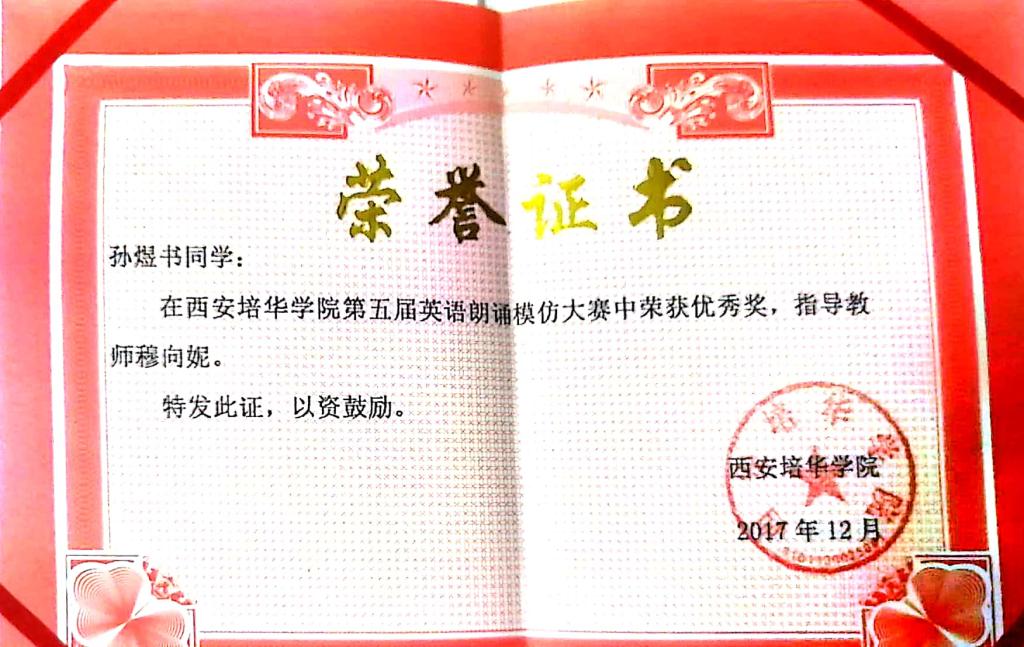 荣誉证书
孙煜书同学：
在西安培华学院第五届英语朗诵模仿大赛中荣获优秀奖，指导教
师穆向妮。
特发此证，以资鼓励。
培华学院
西安培华学院
2017年12月